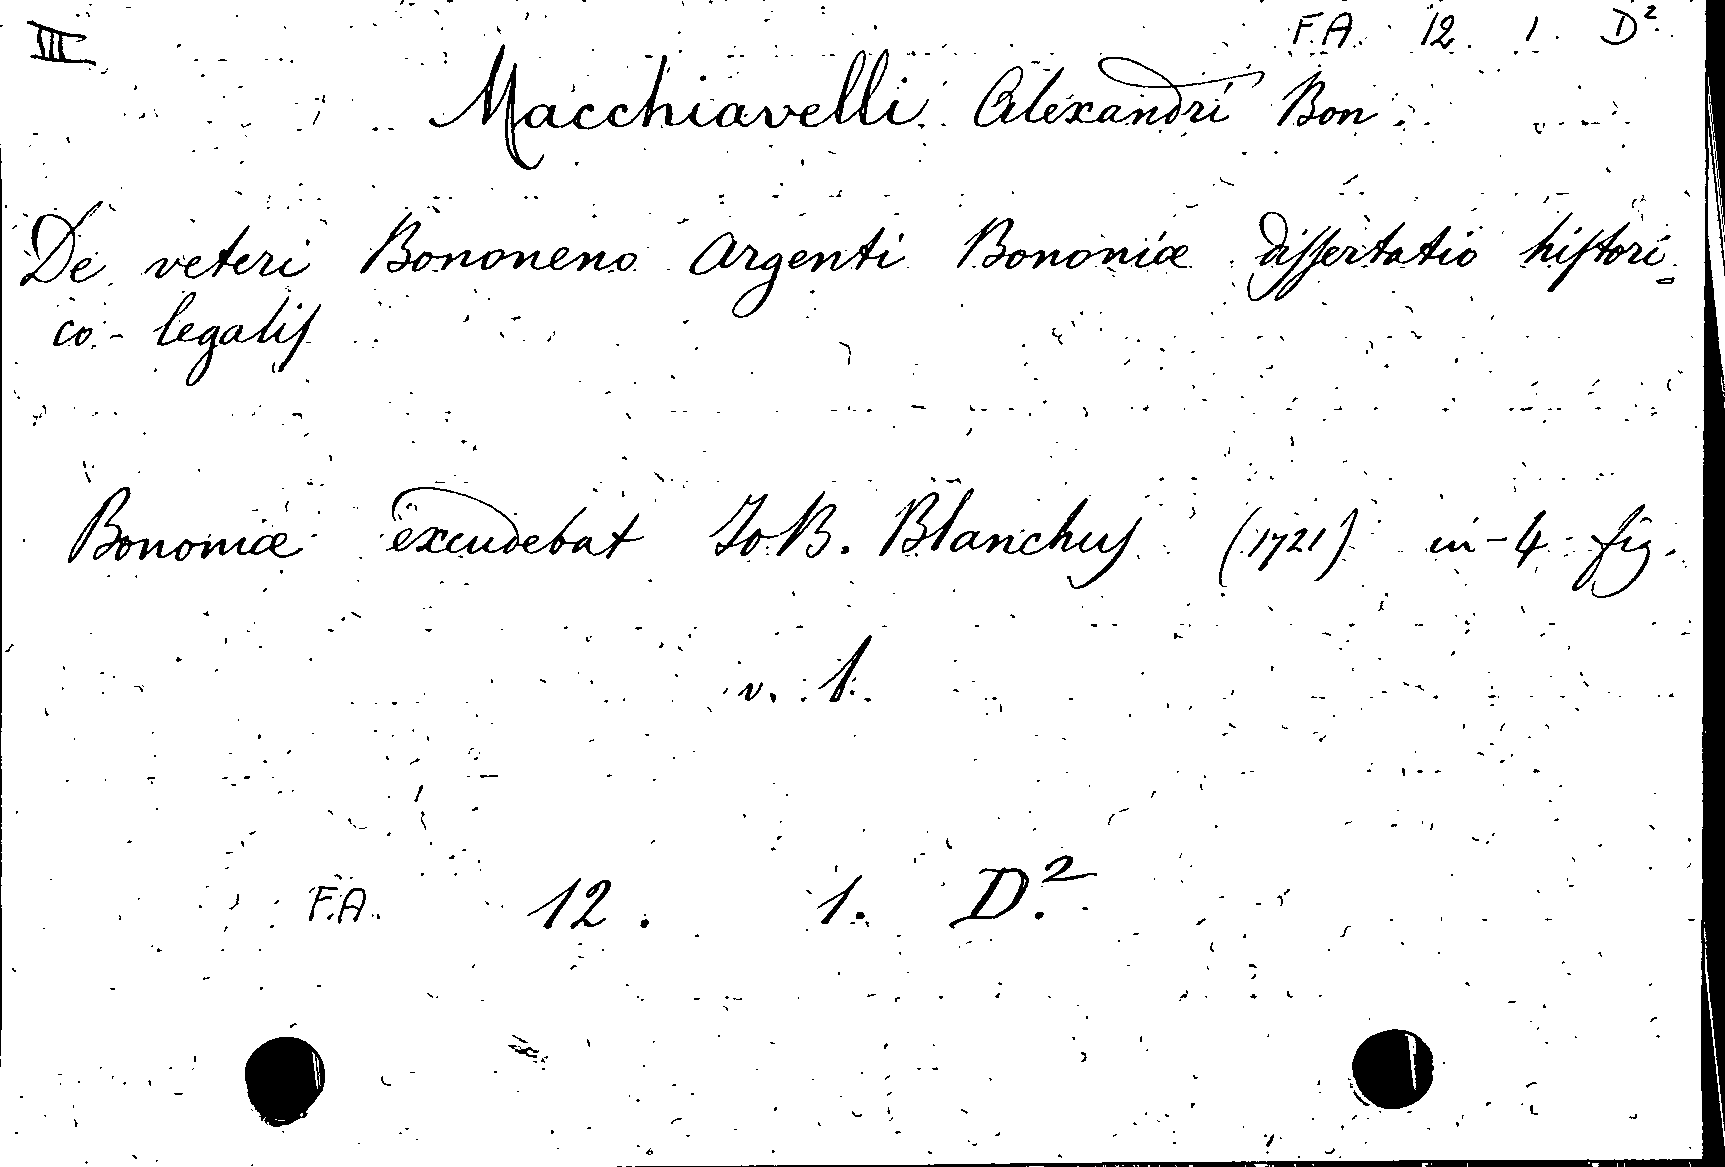 III
F.A. 12. 1. D²
Macchiavelli Alexandri Bon.
De veteri Bononeno Argenti Bononiæ diſsertatio hiſtori=
co-legaliſ
Bononiæ excudebat Jo B. Blanchuſ (1721) in-4 fig.
v. 1.
F.A. 12. 1. D.²